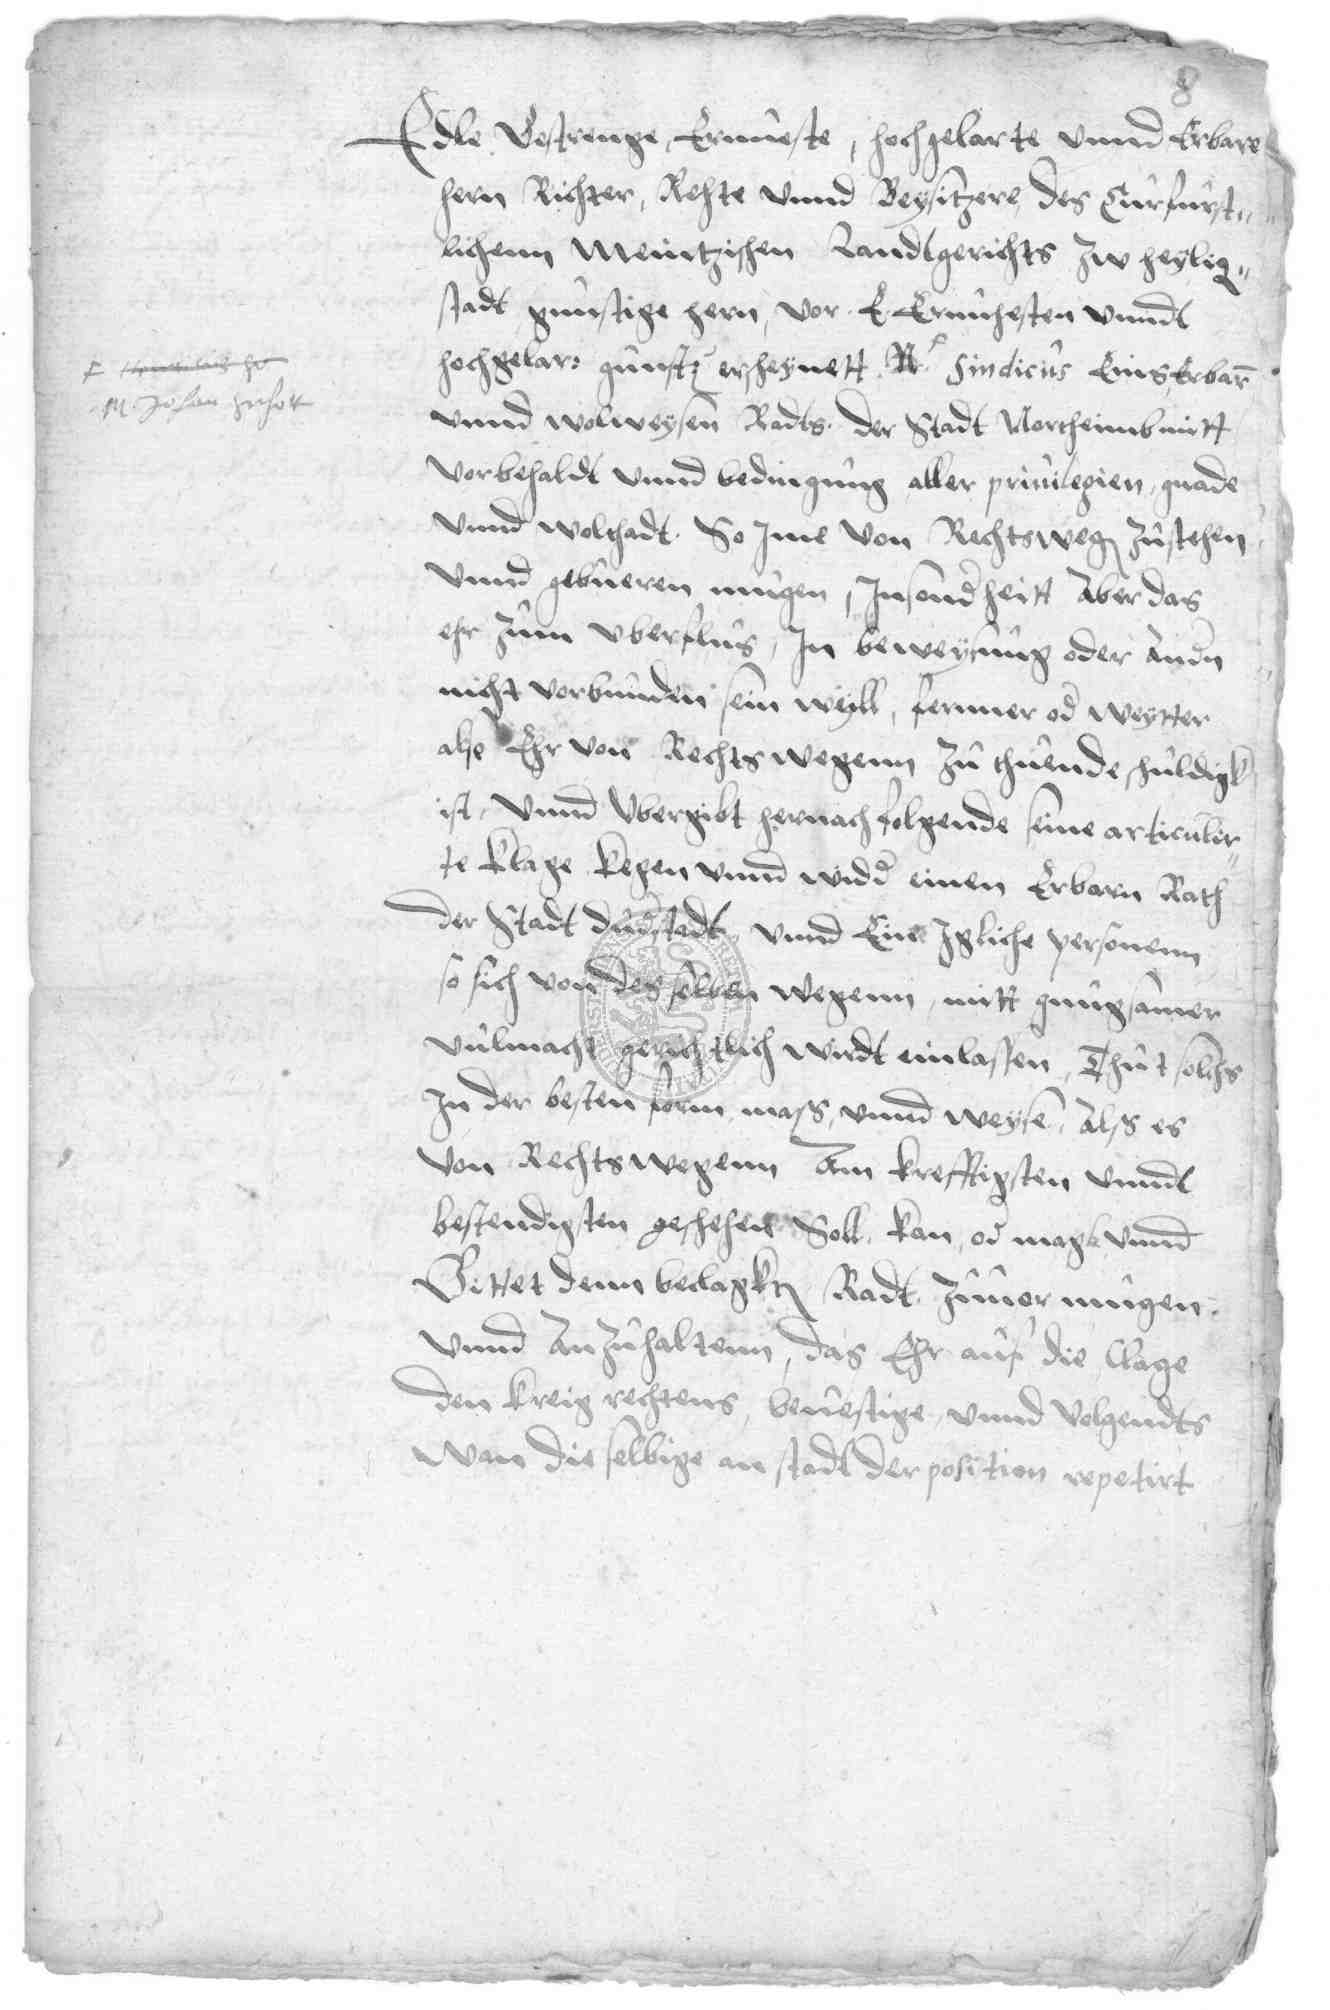 8
Edle Gestrenge, Ernueste, hochgelarte vnnd Erbare
hern Richter, Rehte vnnd Beysitzere, des Curfurst-
lichenn Meintzischen Landtgerichts zw heylig-
stadt gunstige hern, vor E. Ernuhesten vnndt
hochgelar: gunst: ersheynett N. Sindicus Eins Erbarn
M. Johan
vnnd wolweysen Radts der Stadt Northeimb mitt
vorbehaldt vnnd bedingung aller priuilegien, gnade
vnnd wolthadt. So Ime von Rechtswegen zustehen
vnnd gebueren mugen, Insonderheitt Aber das
ehr zum vberflus, In beweysung oder Andern
nicht vorbunden sein wyll, fernner oder weytter
alse Ehr von Rechts wegenn zu thuende shuldigk
ist, vnnd Vbergibt hernachfolgende seine articulir-
te klage kegen vnnd widder einen Erbarn Rath
der Stadt duderstedt vnnd Eine Igliche personenn
so sich von desselben wegenn, mitt gnugsamer
vulmacht gerichtlich wirdt einlassen, Thut solchs
In der besten form, mass, vnnd weyse, Alss es
von Rechts wegenn Am krefftigsten vnndt
bestendigsten geshehen Soll, kan, oder magk vnnd
Bittet denn beclagkten Radt. zuuormugen
vnnd Anzuhaltenn, das Ehr auf die Clage
den kreig rechtens, beuestige, vnnd volgendts
wan die selbige an stadt der position repetirt